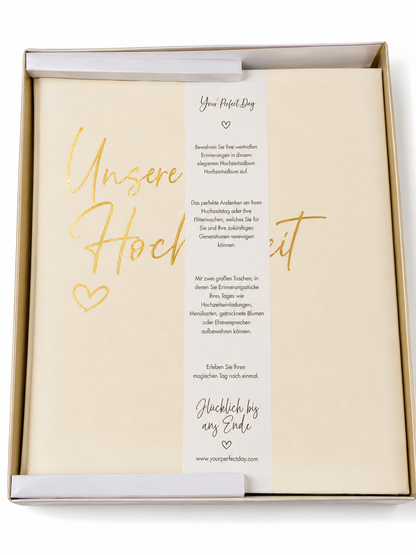 Unsere
Hoch eit
Your Perfect Day
Bewahren Sie Ihre wertvollen
Erinnerungen in diesem
eleganten Hochzeitsalbum
Hochzeitsalbum auf.
Das perfekte Andenken an Ihren
Hochzeitstag oder Ihre
Flitterwochen, welches Sie für
Sie und Ihre zukünftigen
Generationen verewigen
können.
Mit zwei großen Taschen, in
denen Sie Erinnerungsstücke
Ihres Tages wie
Hochzeitseinladungen,
Menükarten, getrocknete Blumen
oder Eheversprechen
aufbewahren können.
Erleben Sie Ihren
magischen Tag noch einmal.
Glücklich bis
ans Ende
www.yourperfectday.com